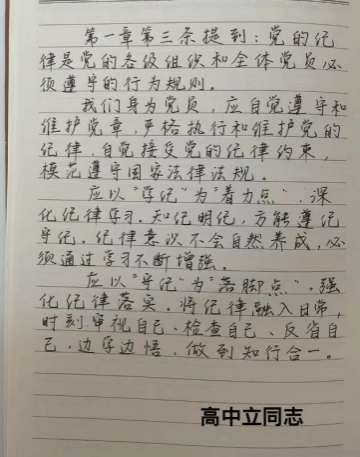 第一章第三条提到：党的纪
律是党的各级组织和全体党员必
须遵守的行为规则。
我们身为党员，应自觉遵守和
维护党章，严格执行和维护党的
纪律，自觉接受党的纪律约束，
模范遵守国家法律法规。
应以“学纪”为“着力点”，深
化纪律学习。知纪明纪，方能遵纪
守纪。纪律意识不会自然养成，必
须通过学习不断增强。
应以“守纪”为“落脚点”，强
化纪律落实。将纪律融入日常，
时刻审视自己、检查自己、反省自
己，边学边悟，做到知行合一。
高中立同志